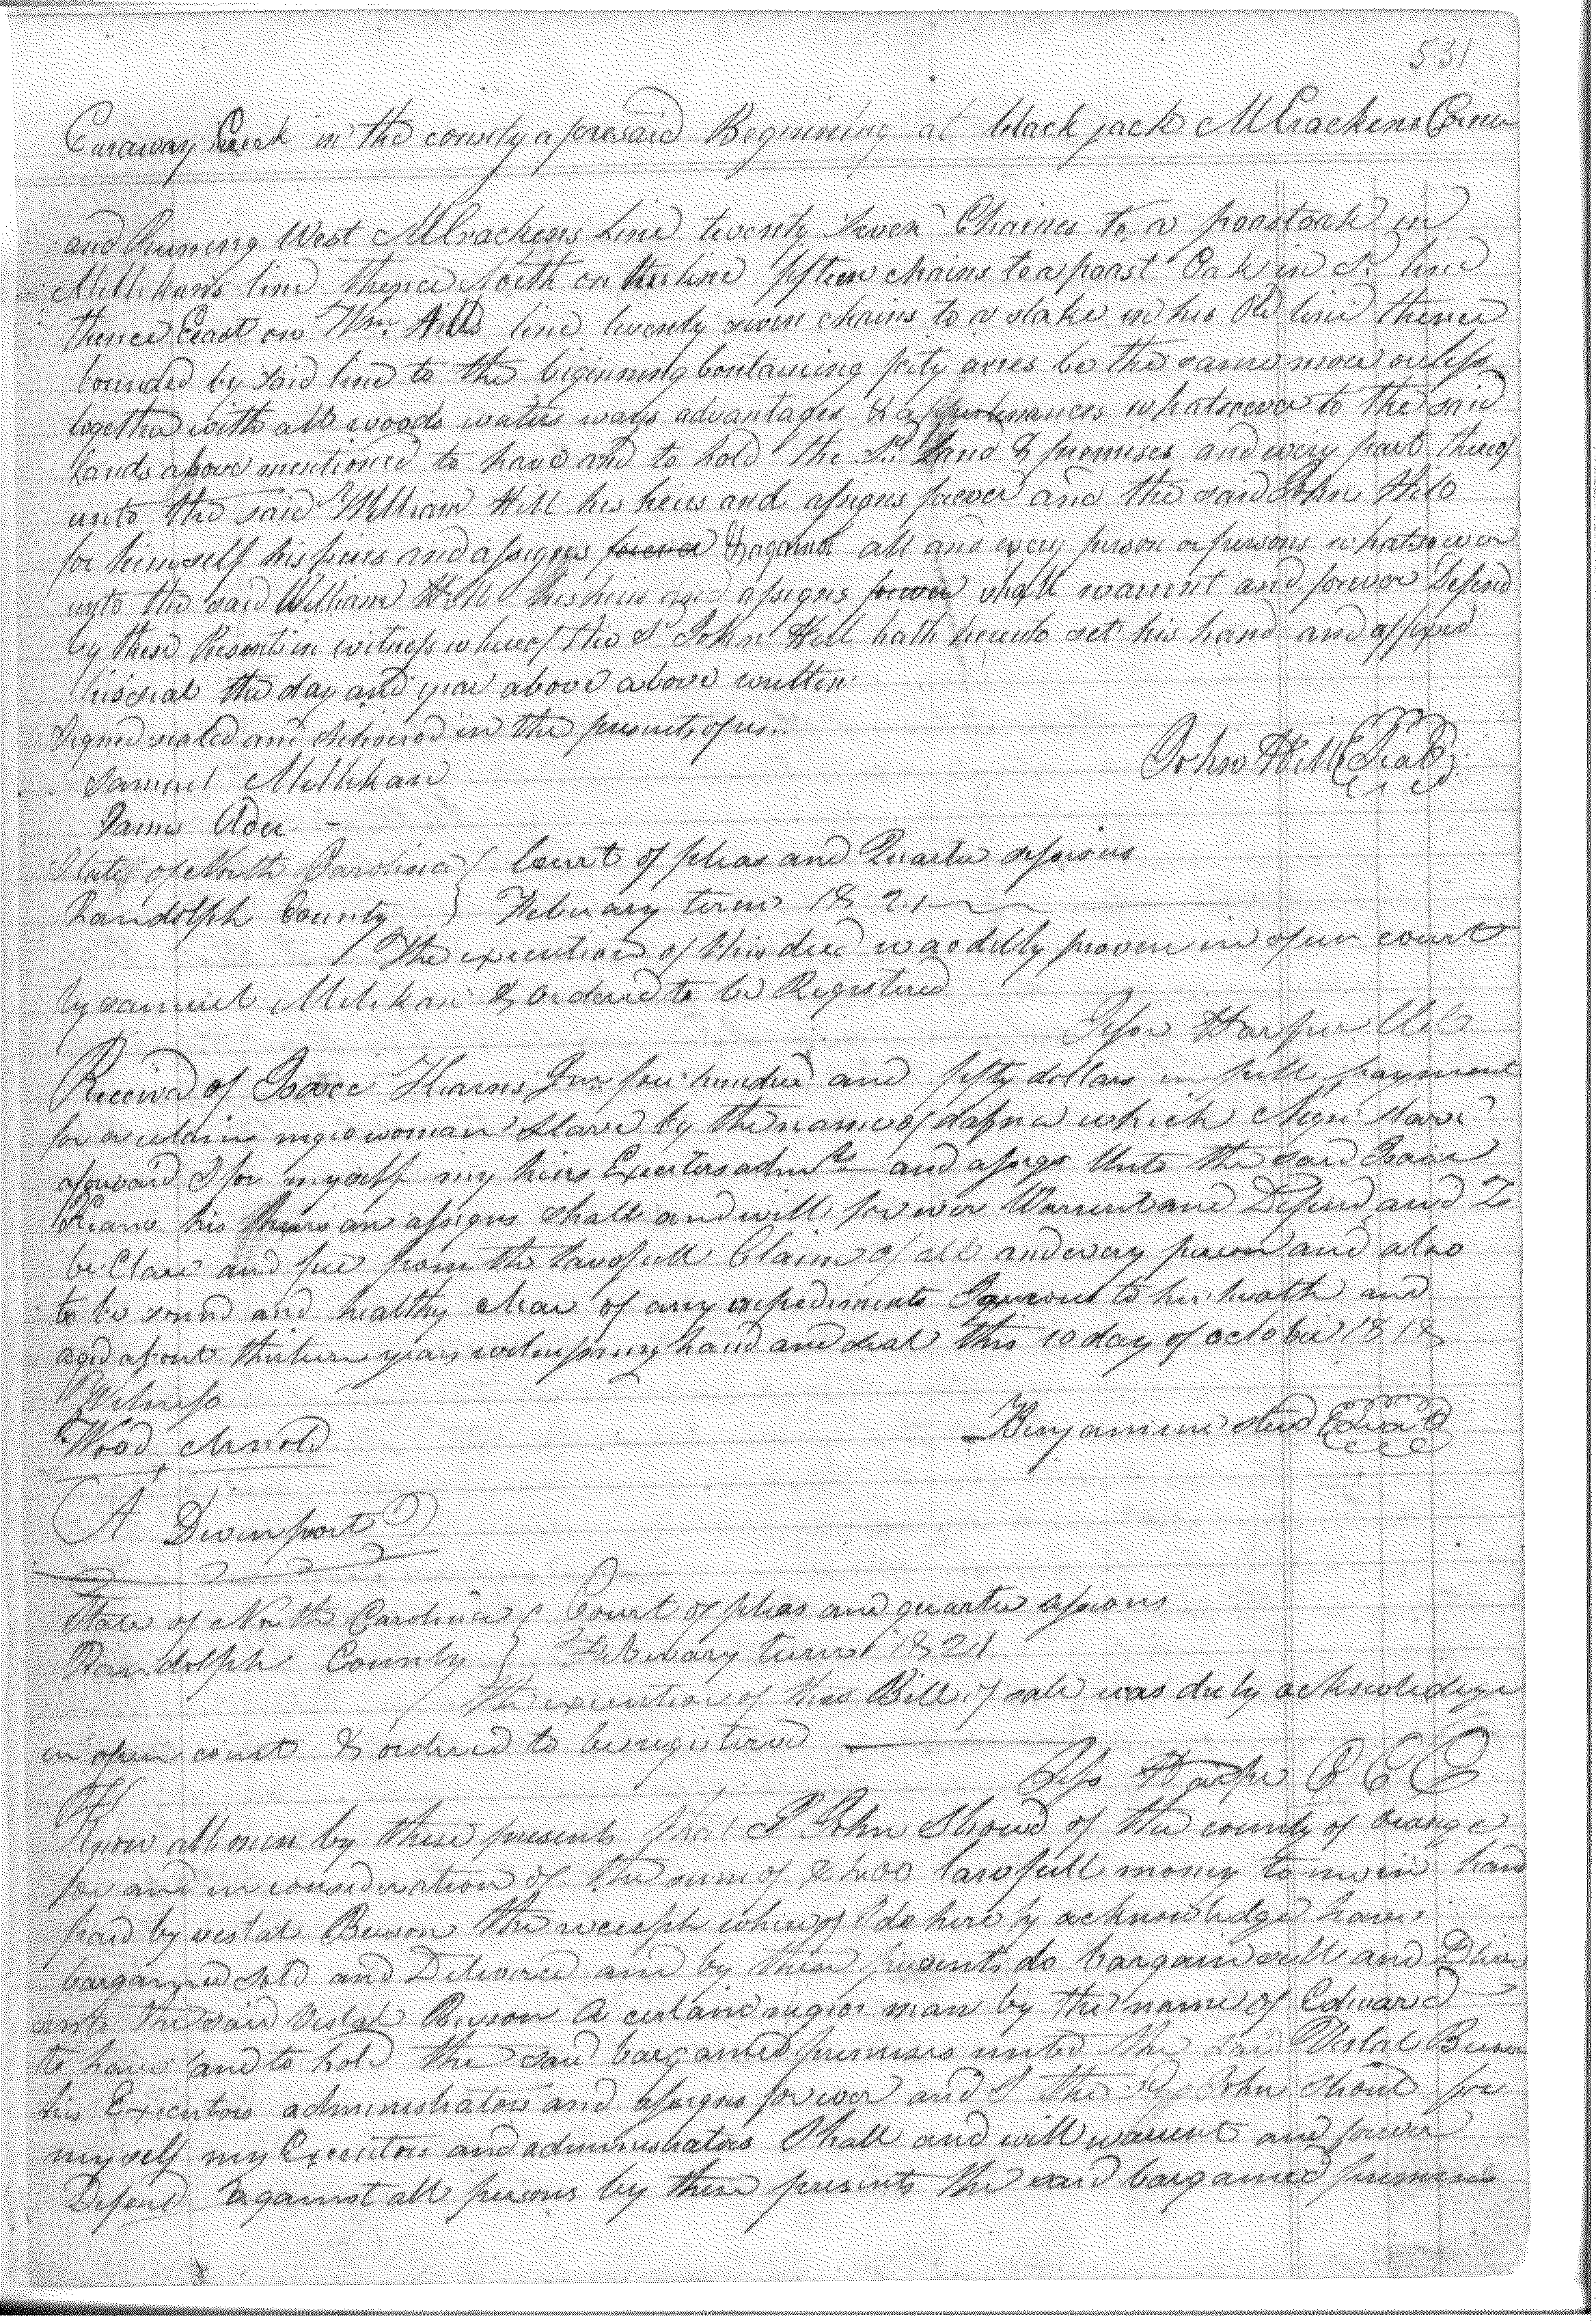 531
Caraway Creek in the county aforesaid Beginning at black jack McCrackens Corner
and Runing West McCrackens Line twenty seven Chaines to a poastoak in
Millikans line thence North on his line fifteen chains to a poast Oak in sd line
thence East on Wm. Hills line twenty seven chains to a stake in his Old line thence
bounded by said line to the biginning Containing forty acres be the same more or less
together with all woods waters ways advantages & appurtenances whatsoever to the said
Lands above mentioned to have and to hold the sd. Land & premises and every part thereof
unto the said William Hill his heirs and assigns forever and the said John Hill
for himself his heirs and assigns forever & against all and every person or persons whatsoever
unto the said William Hill his heirs and assigns forever shall warrent and forever Defend
by these Presents in witness whereof The sd John Hill hath hereunto set his hand and affixed
his seal the day and year above above written
Signed sealed and delivered in the presents of us
John Hill Seal
Samuel Millikan
James Ader
State of North Carolina Court of pleas and Quarter sessions
Randolph County February term 1821
The execution of this deed was dilly proven in open court
by Samuel Milikan & ordered to be Registered
Jesse Harper Clk
Received of Isaac Kearns Jnr four hundred and fifty dollars in full payment
for a certain negro woman Slave by the name of which Negro slave
aforesaid I for myself my heirs Executors admrs and assigs Unto the said Isaac
Kearns his heirs an assigns shall and will for ever Warrent and Defend and To
be Clare and free from the lawfull Claim of all and every person and also
to be sound and healthy clear of any impediments to her heath and
aged about thirteen years witness my hand and seal this 10 day of october 1818
Witness
Wood Arnold
Benjamine Steed Seal
A Divenport
State of North Carolina Court of pleas and quarter sessions
Randolph County February turm 1821
the execution of this Bill of sale was duly acknowledge
in open court & ordered to be registered
Jess Harper C C C
Know all men by these presents that I John Shoud of the county of orange
for and in consideration of the sum of lawfull money to me in hand
paid by vestal Beeson the receiph where of I do here by acknowledge have
bargained sold and Delivered and by these presents do bargain sell and Deliver
unto the said Vestal Beeson a certain negror man by the name of Edward
to have and to hold the said bargained premises unted the said Vestal Beeson
his Executors administrators and assigns for ever and I the sd John Shoud for
my self my Executors and administrators Shall and will warrent and forever
Defend against all persons by these presents the said bargained premises